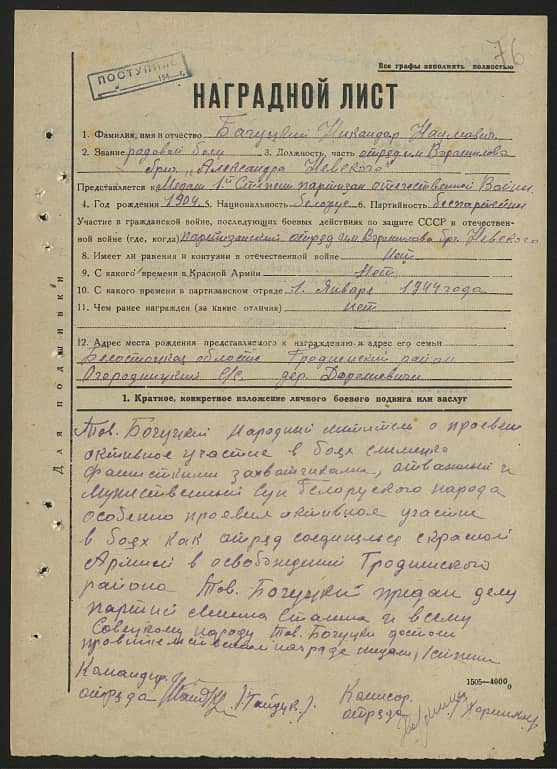 76
Все графы заполнить полностью
ПОСТУПИЛО
НАГРАДНОЙ ЛИСТ
1. Фамилия, имя и отчество Багуцкий Никандар Наумавич
2. Звание радовой боец 3. Должность, часть отред им Варашилова
бриг. „Александра Невского"
Представляется к Медали 1ой Степени партизан отечественной Войны
4. Год рождения 1904 5. Национальность белорус 6. Партийность беспартейны
Участие в гражданской войне, последующих боевых действиях по защите СССР и отечествен-
ной войне (где, когда) партизанский отред им. Варашилова бр. Невского
8. Имеет ли ранения и контузии в отечественной войне Нет
9. С какого времени в Красной Армии Нет
10. С какого времени в партизанском отряде 1. Января 1944 года
11. Чем ранее награжден (за какие отличия) Нет
12. Адрес места рождения представляемого к награждению и адрес его семьи
Белостоцкая область Гродненский район
Огородницкий С/С дер.
Для подшивки
1. Краткое, конкретное изложение личного боевого подвига или заслуг
Тов. Богуцкий Народный мститель
активное участие в боях
фашисткими захватчиками, отважный и
Мужественный Сын Белоруского народа
особенно проевил активное участие
в боях как отряд соединился с красной
Армией в освобождений Гродненского
района Тов. Богуцкий предан делу
партии Ленина Сталина и всему
Советскому народу Тов. Богуцки достоин
награде медали 1 степени
Командир
отреда
Комисар
отреда
1505—4000